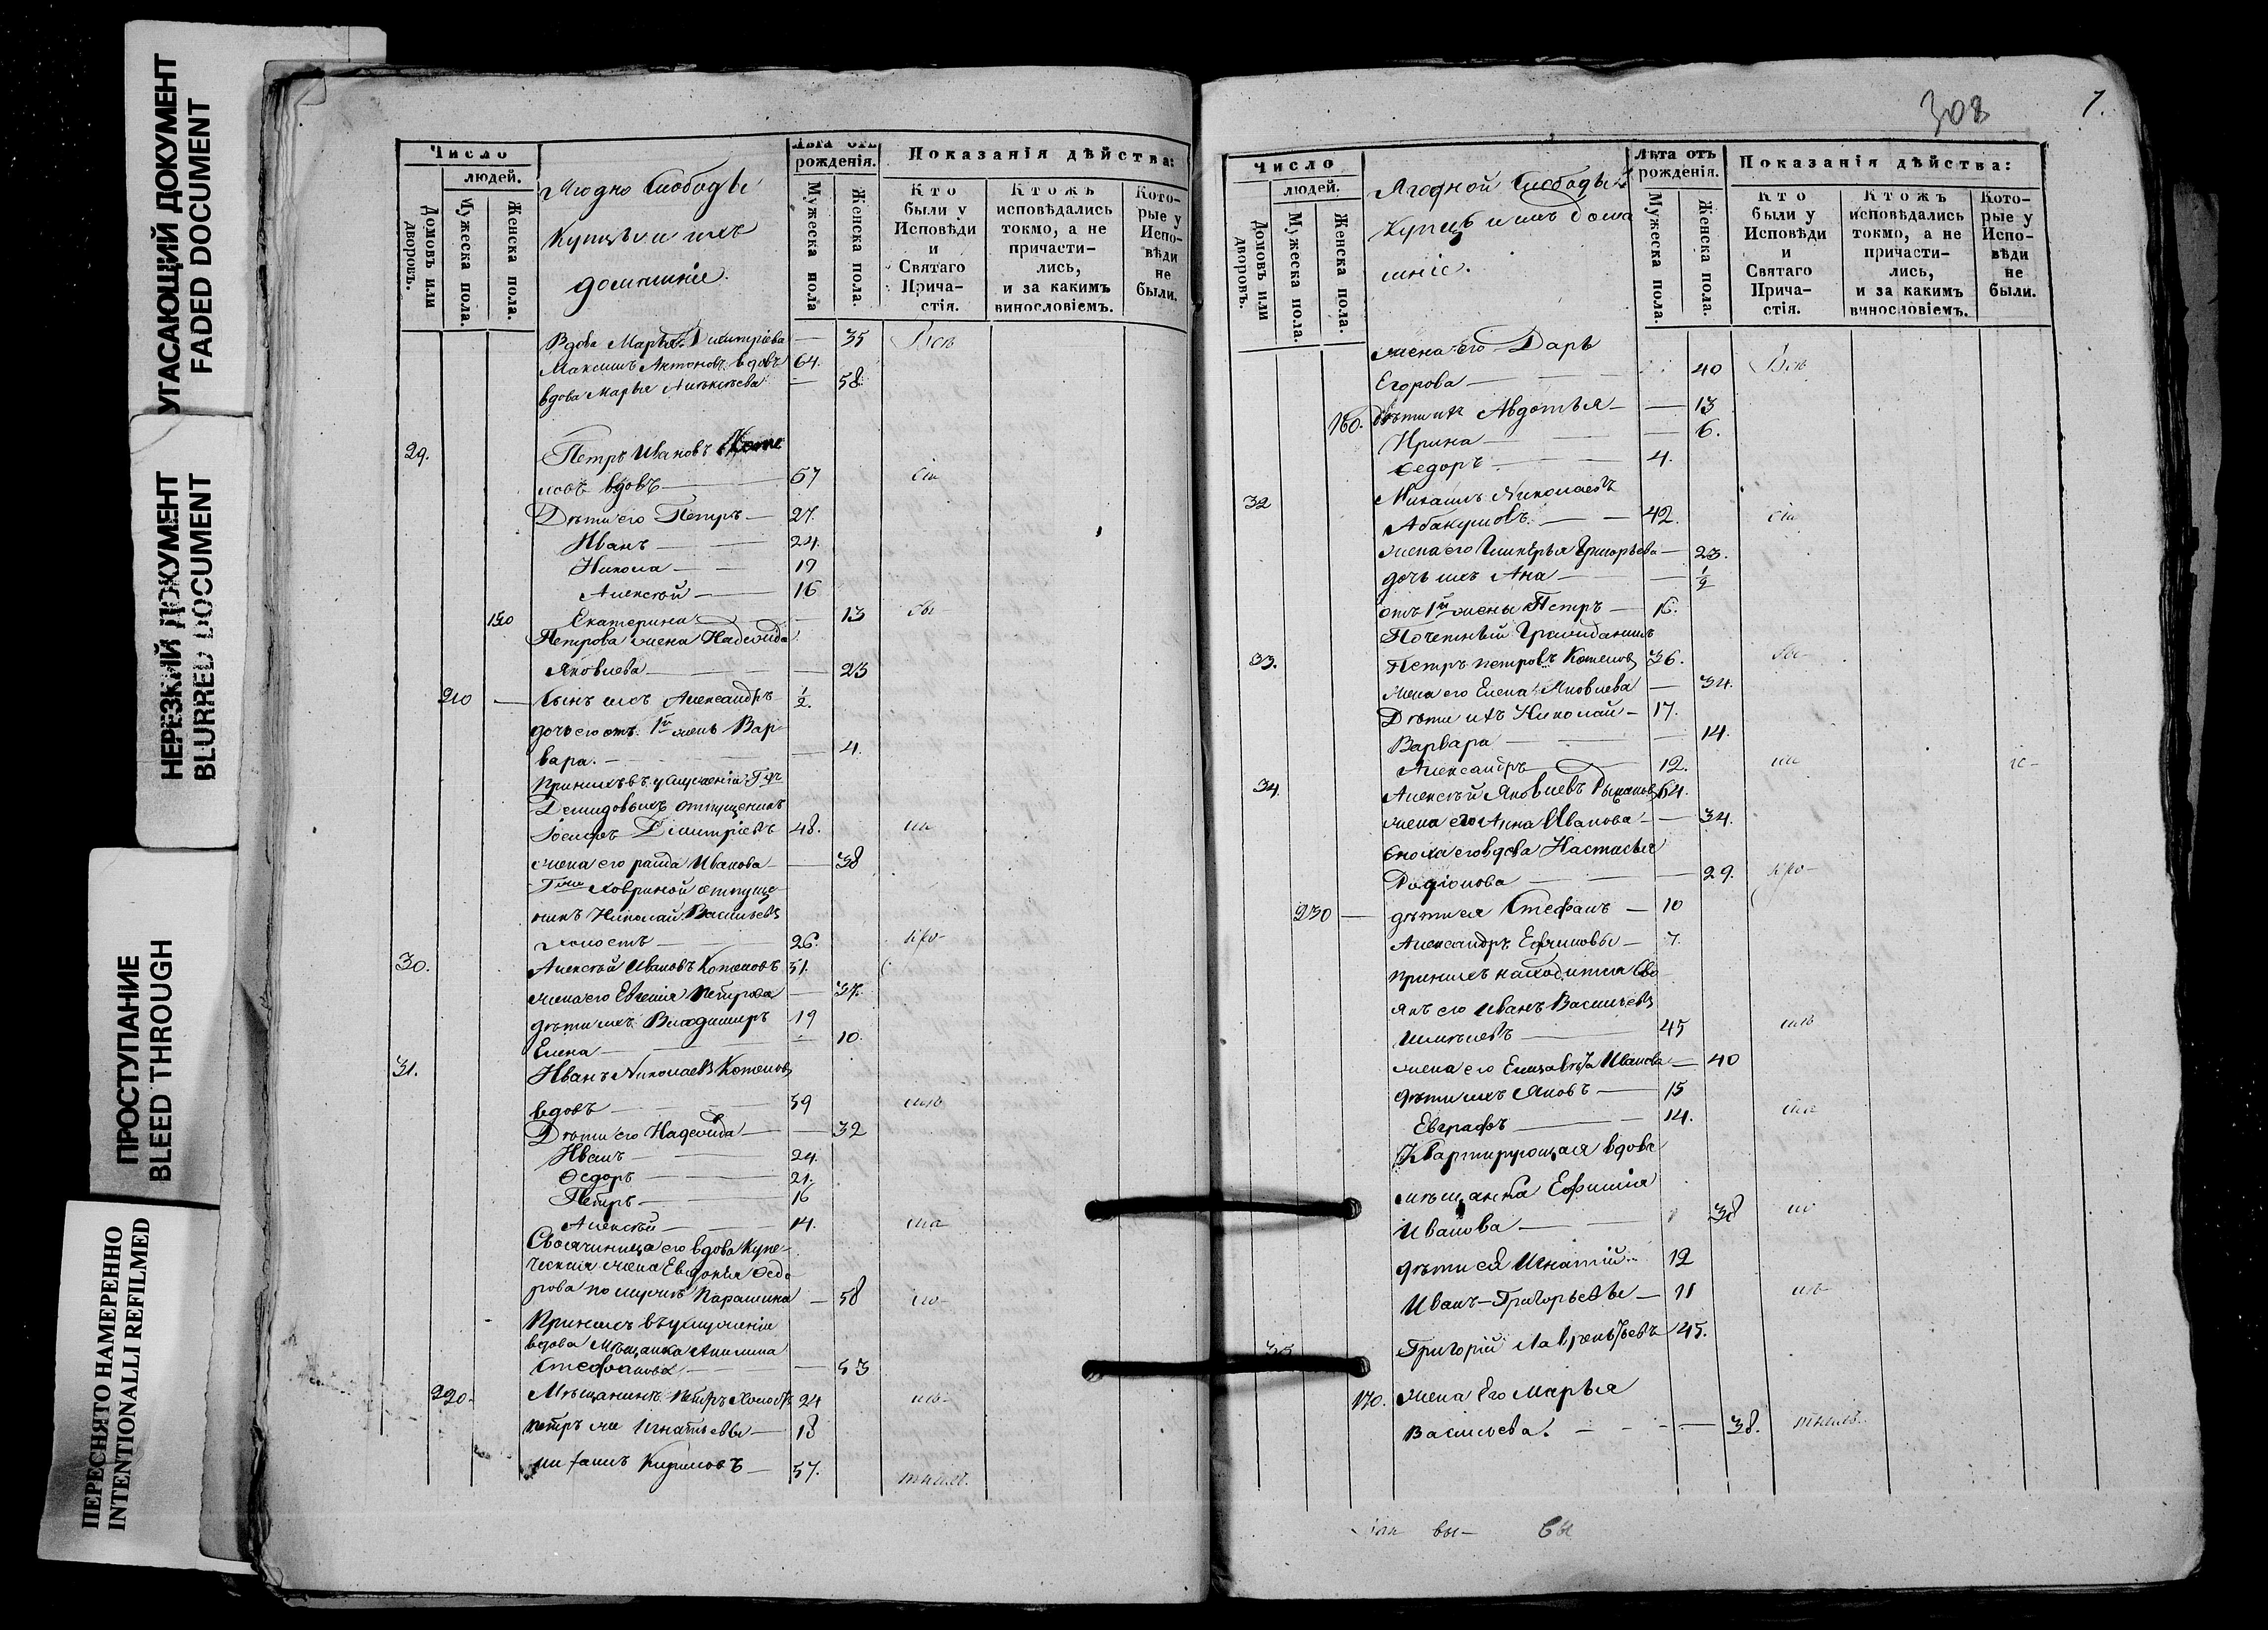 УГАСАЮЩИЙ ДОКУМЕНТ
FADED DOCUMENT
НЕРЕЗКИЙ ДОКУМЕНТ
BLURRED DOCUMENT
ПРОСТУПАНИЕ
BLEED THROUGH
ПЕРЕСНЯТО НАМЕРЕННО
INTENTIONALLI REFILMED
Число
людей.
Домовъ или дворовъ.
Мужеска пола.
Женска пола.
Ягодно Слободы
Купцы и ихъ
домашніе.
Лѣта отъ рожденія.
Мужеска пола
Женска пола.
Показанія дѣйства:
Кто были у Исповѣди и Святаго Прича-стія.
Ктожъ исповѣдались токмо, а не причасти-лись, и за какимъ винословіемъ.
Кото-рые у Испо-вѣди не были.
Вдова Марѳа Димитріева — 35
Максимъ Антоновъ вдовъ 64.
вдова Марья Алексѣева — 58
29. Петръ Ивановъ Коте
ловъ вдовъ — 57
Дѣти его Петръ — 27.
Иванъ — 24.
Никола — 19
Алексѣй — 16
150 Екатерина — 13
Петрова жена Надежда
Яковлева — 23
210 — Сынъ ихъ Александръ 1/2.
дочь его отъ 1й жены Вар
вара. — 4.
Демидовыхъ отпущеникъ
Іосифъ Димитріевъ 48.
жена его Ивanова — 38
отпуще
никъ Николай Васильевъ
холостъ — 26.
30. Алексѣй Ивановъ Котеловъ 51.
жена его Евгенія Петрова — 37.
дѣти ихъ Владимиръ 19
Елена — 10.
31. Иванъ Николаевъ Котеловъ
вдовъ — 59
Дѣти его Надежда — 32
Иванъ — 24.
Ѳедоръ — 21.
Петръ — 16
Алексѣй — 14.
Своячиница его вдова Купе-
ческая жена Евдокія Ѳедо
рова по мужѣ Парашина — 58
вдова Мѣщанка Акилина
Стефанова — 53
220. Мѣщанинъ Петръ Холостъ 24
Петръ же Игнатьевы — 18
Кириловъ — 57.
308
7.
Число
людей.
Домовъ или дворовъ.
Мужеска пола.
Женска пола.
Ягодной Слободы
Купцы и ихъ дома
шніе.
Лѣта отъ рожденія.
Мужеска пола.
Женска пола.
Показанія дѣйства:
Кто были у Исповѣди и Святаго Прича-стія.
Ктожъ исповѣдались токмо, а не причасти-лись, и за какимъ винословіемъ.
Кото-рые у Испо-вѣди не были.
жена его Дарья
Егорова — 40
160. дѣти ихъ Авдотья — 13
Ирина — 6.
Ѳедоръ — 4.
32 Михаилъ Николаевъ
Абакумовъ. — 42.
жена его Гликерья Григорьева — 23.
дочь ихъ Ана — 1/2
отъ 1й жены Петръ — 16.
Почетный Гражданинъ
33. Петръ Петровъ Котеловъ 36.
жена его Елена Яковлева — 34.
Дѣти ихъ Николай — 17.
Варвара — 14.
Александръ — 12.
34. Алексѣй Яковлевъ 64.
жена его Анна Иванова — 34.
Сноха его вдова Настасья
Родіонова — 29.
230 — дѣти ея Стефанъ — 10
Александръ Ефимовы — 7.
при нихъ находится Сво
якъ его Иванъ Васильевъ
45
жена его Елизавѣта Иванова — 40
дѣти ихъ Яковъ — 15
Евграфъ — 14.
Квартирующая вдова
мѣщанка Ефимія
Иванова — 38
дѣти ея Игнатій — 12
Иванъ — Григорьевы — 11
35 Григорій Лаврентьевъ 45.
170. жена Его Марья
Васильева. — 38.
вы — вы